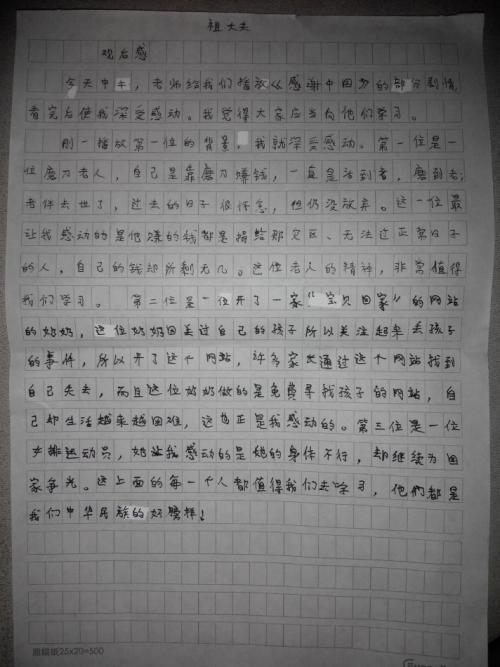 祖大夫
观后感
今天中午，老师给我们播放《感谢中国》的部分剧情，
看完后使我深受感动。我觉得大家应当向他们学习。
刚一播放第一位的背景，我就深受感动。第一位是一
位磨刀老人，自己是靠磨刀赚钱，一直是活到老，磨到老，
老伴去世了，过去的日子很怀念，但仍没放弃。这一位最
让我感动的是他赚的钱都是捐给那灾区、无法过正常日子
的人，自己的钱却所剩无几。这位老人的精神，非常值得
我们学习。 第二位是一位开了一家“宝贝回家”的网站
的奶奶，这位奶奶因丢过自己的孩子所以关注起来丢孩子
的事件，所以开了这个网站，许多家长通过这个网站找到
自己失去，而且这位奶奶做的是免费寻找孩子的网站，自
己却生活越来越困难，这也正是我感动的。第三位是一位
排运动员，她让我感动的是她的身体不行，却继续为国
家争光。这上面的每一个人都值得我们去学习，他们都是
我们中华民族的好榜样！
25x20=500